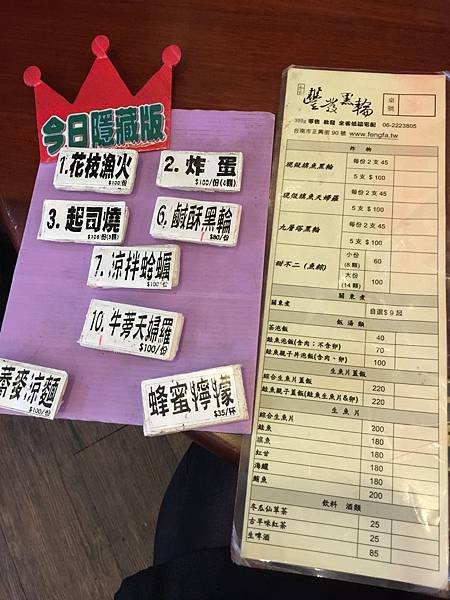 今日隱藏版
1.花枝漁火
$100/份
2.炸蛋
$100/份(6顆)
3.起司燒
6.鹹酥黑輪
$80/份
7.涼拌蛤蠣
$100/份
10.牛蒡天婦羅
$100/份
蕎麥涼麵
$100/份
蜂蜜檸檬
$35/杯
豐發黑輪
桌號
零售 批發 全省低溫宅配 06-2223805
台南市正興街90號 www.fengfa.tw
炸物
現做旗魚黑輪
每份2支45
5支 $100
現做旗魚天婦羅
每份2支45
5支 $100
九層塔黑輪
每份2支45
5支 $100
甜不二(魚餅)
小份(8顆) 60
大份(14顆) 100
關東煮
關東煮 自選$9起
飯湯類
茶泡飯 40
鮭魚泡飯(含肉;不含卵) 70
鮭魚親子丼泡飯(含肉、卵) 100
生魚片蓋飯
綜合生魚片蓋飯 220
鮭魚親子蓋飯(鮭魚生魚片&卵) 220
生魚片
綜合生魚片 200
鮭魚 180
旗魚 180
紅甘 180
海鱺 180
鮪魚 200
飲料 酒類
冬瓜仙草茶 25
古早味紅茶 25
生啤酒 85